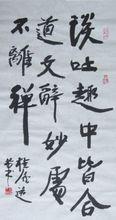 談吐趣中皆合
道文辭妙處
不離禅